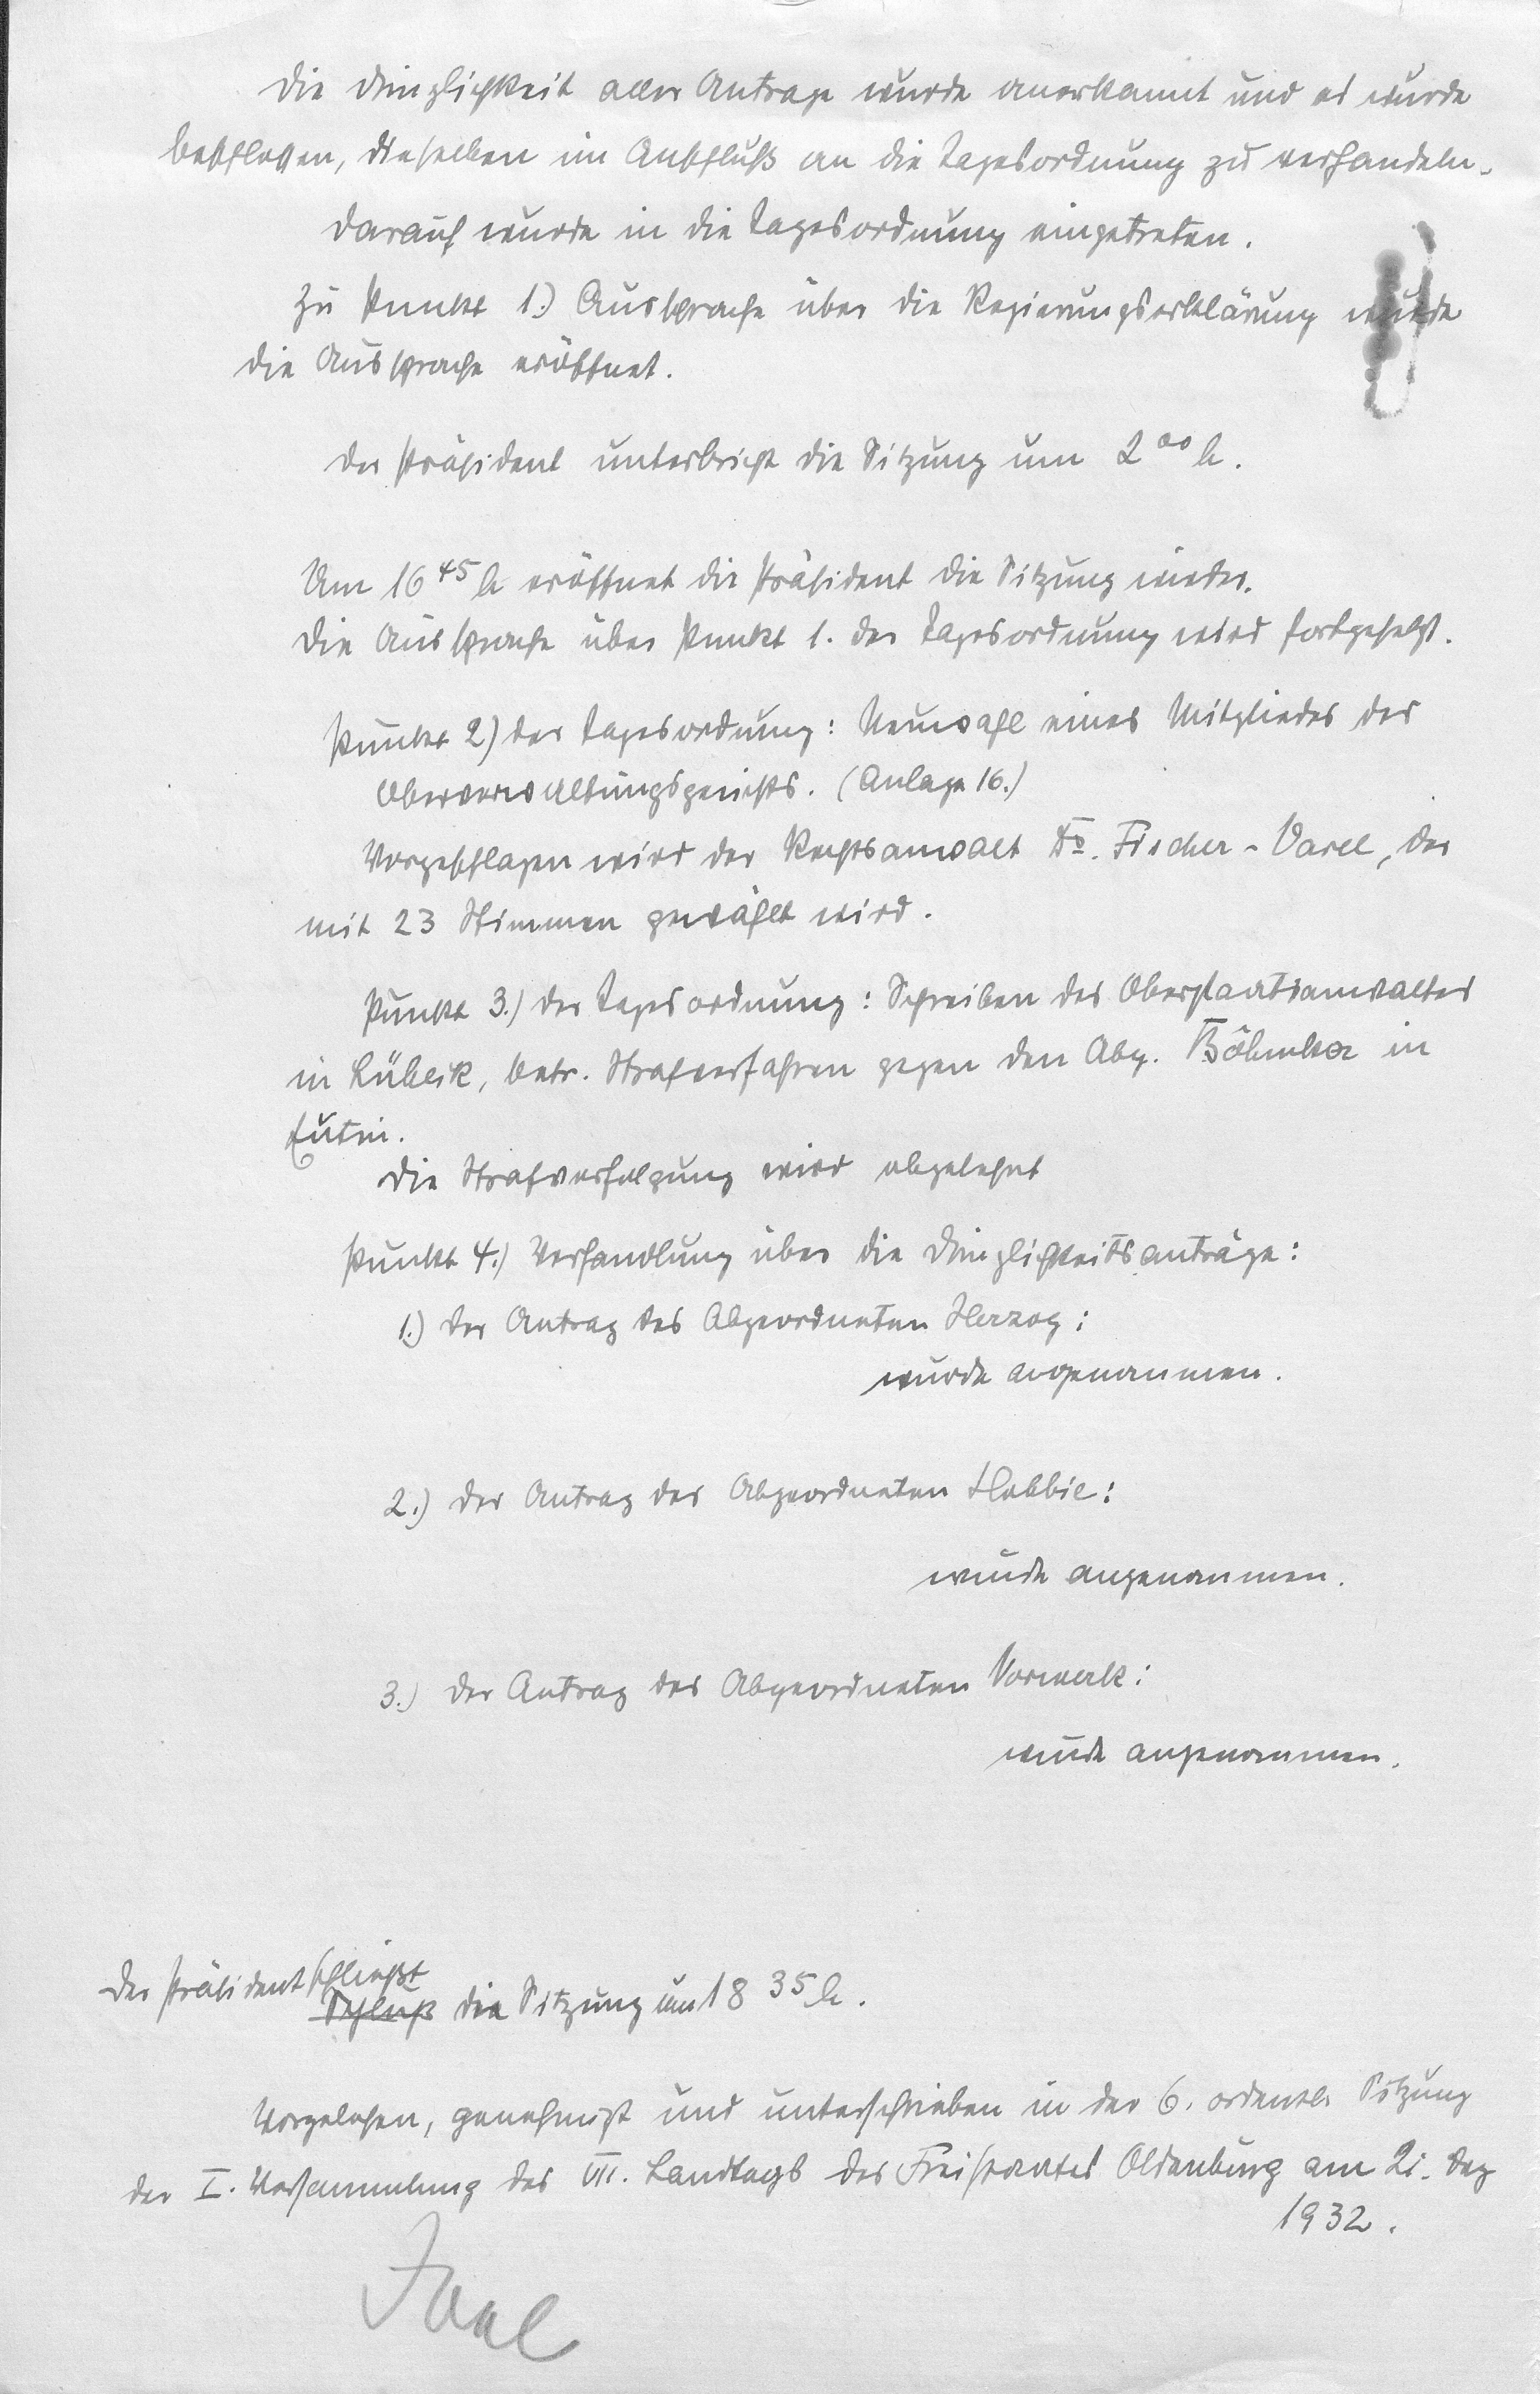 Die Dringlichkeit aller Anträge wurde anerkannt und es wurde
beschlossen, dieselben im Anschluß an die Tagesordnung zu verhandeln.
Darauf wurde in die Tagesordnung eingetreten.
Zu Punkt 1.) Aussprache über die Regierungserklärung wurde
die Aussprache eröffnet.
Der Präsident unterbricht die Sitzung um 2⁰⁰ h.
Um 16⁴⁵ h eröffnet der Präsident die Sitzung wieder.
Die Aussprache über Punkt 1. der Tagesordnung wird fortgesetzt.
Punkt 2) der Tagesordnung: Neuwahl eines Mitgliedes des
Oberverwaltungsgerichts. (Anlage 16.)
Vorgeschlagen wird der Rechtsanwalt Dr. Fischer-Varel, der
mit 23 Stimmen gewählt wird.
Punkt 3.) der Tagesordnung: Schreiben des Oberstaatsanwaltes
in Lübeck, betr. Strafverfahren gegen den Abg. Böhmker in
Eutin.
Die Strafverfolgung wird abgelehnt
Punkt 4.) Verhandlung über die Dringlichkeitsanträge:
1.) Der Antrag des Abgeordneten Herzog:
wurde angenommen.
2.) Der Antrag des Abgeordneten Hobbie:
wurde angenommen.
3.) Der Antrag des Abgeordneten Vorwerk:
wurde angenommen.
Der Präsident schließt
Schluß die Sitzung um 18³⁵ h.
Vorgelesen, genehmigt und unterschrieben in der 6. ordentl. Sitzung
der I. Versammlung des VII. Landtags des Freistaates Oldenburg am 21. Dez
1932.
Joel